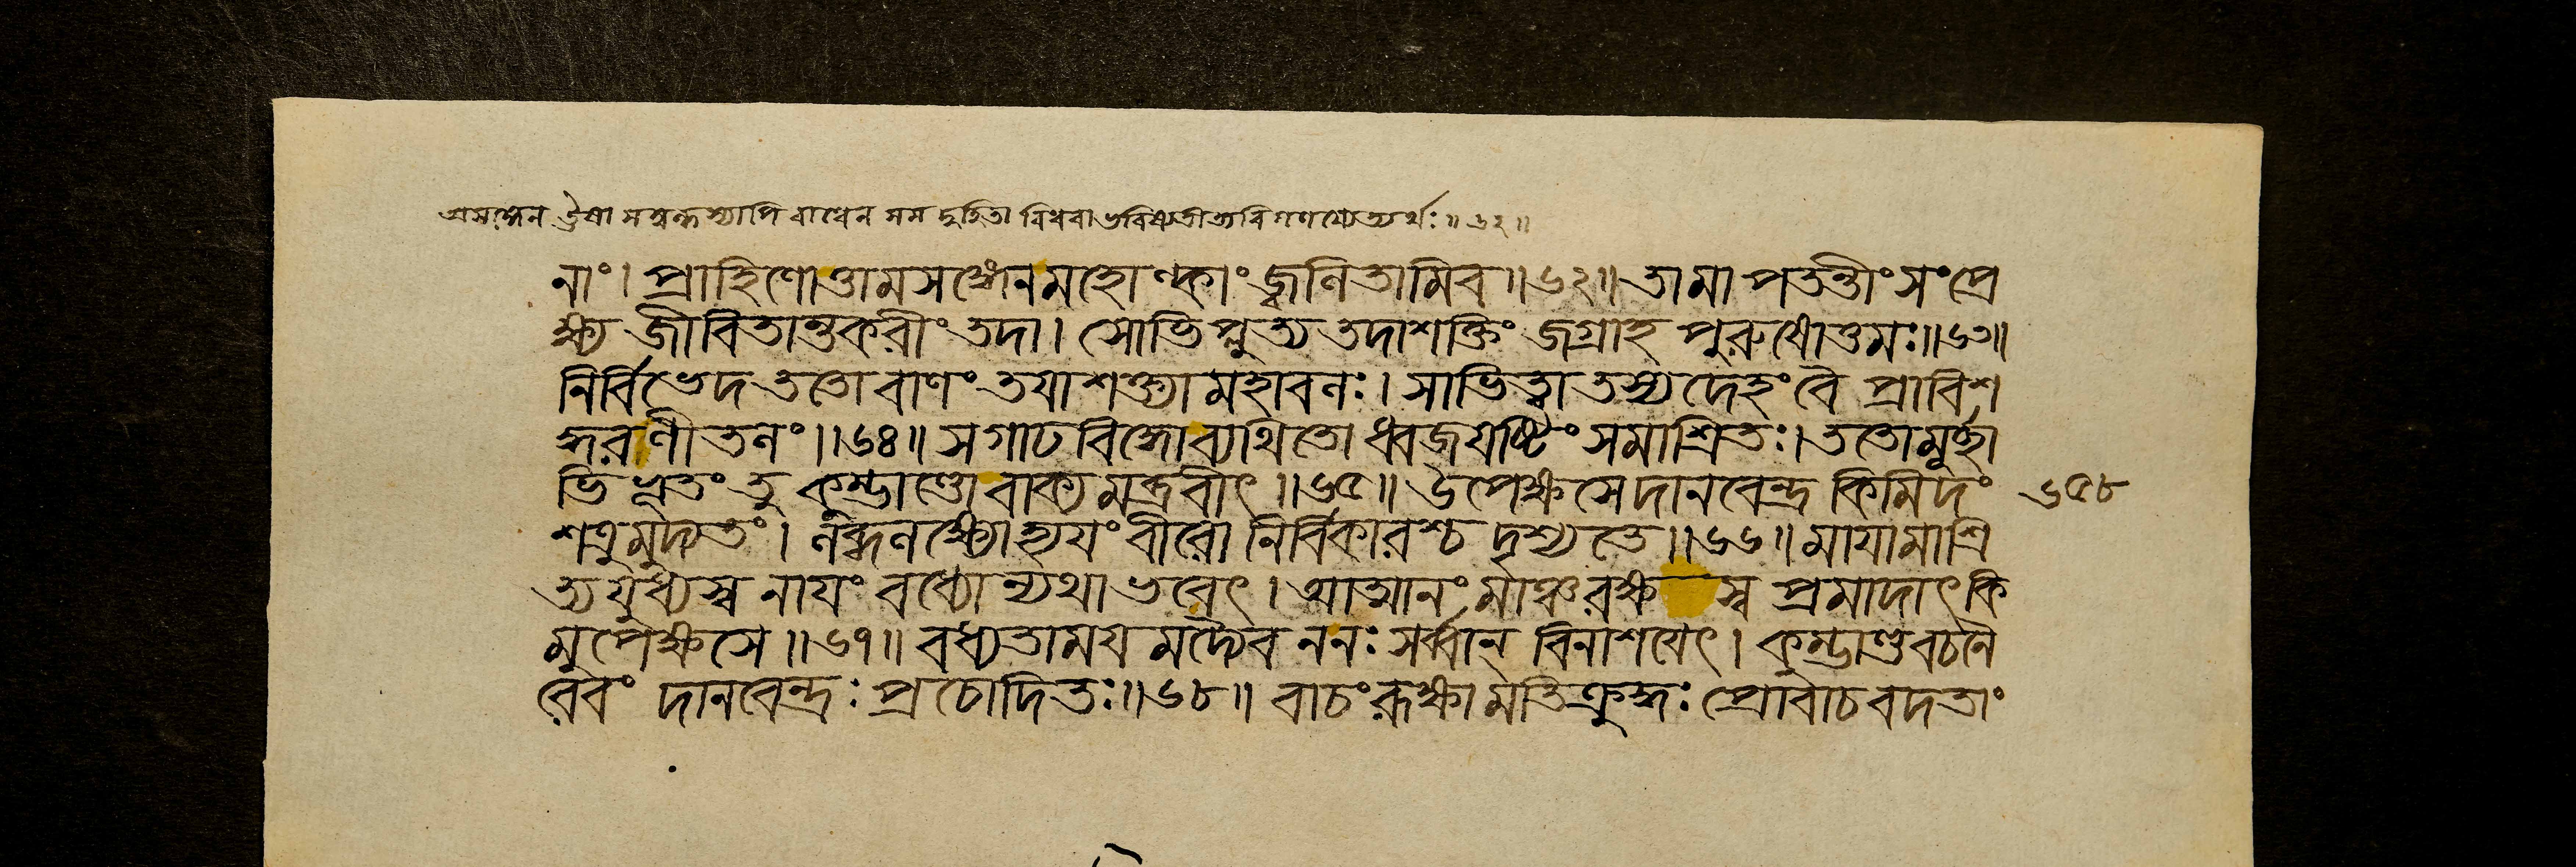 অসঙ্গেন ঊষা সম্বন্ধস্যাপি বাধেন মম দুহিতা বিধবা ভবিষ্যতীত্যবিগণয্যেত্যর্থঃ॥৬২॥
নাং। প্রাহিণোত্তামসঙ্গেন মহোল্কাং জ্বলিতামিব॥৬২॥ তামাপতন্তীং সংপ্রে
ক্ষ্য জীবিতান্তকরীং তদা। সোভিপ্লুত্য তদা শক্তিং জগ্রাহ পুরুষোত্তমঃ॥৬৩॥
নির্বিভেদ ততো বাণং তয়া শক্ত্যা মহাবলঃ। সা ভিত্ত্বা তস্য দেহং বৈ প্রাবিশ
দ্ধরণীতলং॥৬৪॥ স গাঢবিদ্ধো ব্যথিতো ধ্বজযষ্টিং সমাশ্রিতঃ। ততো মূর্ছা
ভিপ্লুতং তু কুম্ভাণ্ডো বাক্যমব্রবীৎ॥৬৫॥ উপেক্ষসে দানবেন্দ্র কিমিদং
৬৫৮
শত্রুমুদ্যতং। লব্ধলক্ষ্যোহ্যয়ং বীরো নির্বিকারশ্চ দৃশ্যতে॥৬৬॥ মায়ামাশ্রি
ত্য যুধ্যস্ব নায়ং বধ্যোন্যথা ভবেৎ। আত্মানং মাঞ্চ রক্ষস্ব প্রমাদাৎ কি
মুপেক্ষসে॥৬৭॥ বধ্যতাময়মদ্যৈব ন নঃ সর্ব্বান্ বিনাশয়েৎ। কুম্ভাণ্ডবচনৈ
রেবং দানবেন্দ্রঃ প্রচোদিতঃ॥৬৮॥ বাচং রূক্ষামতিক্রুদ্ধঃ প্রোবাচ বদতাং